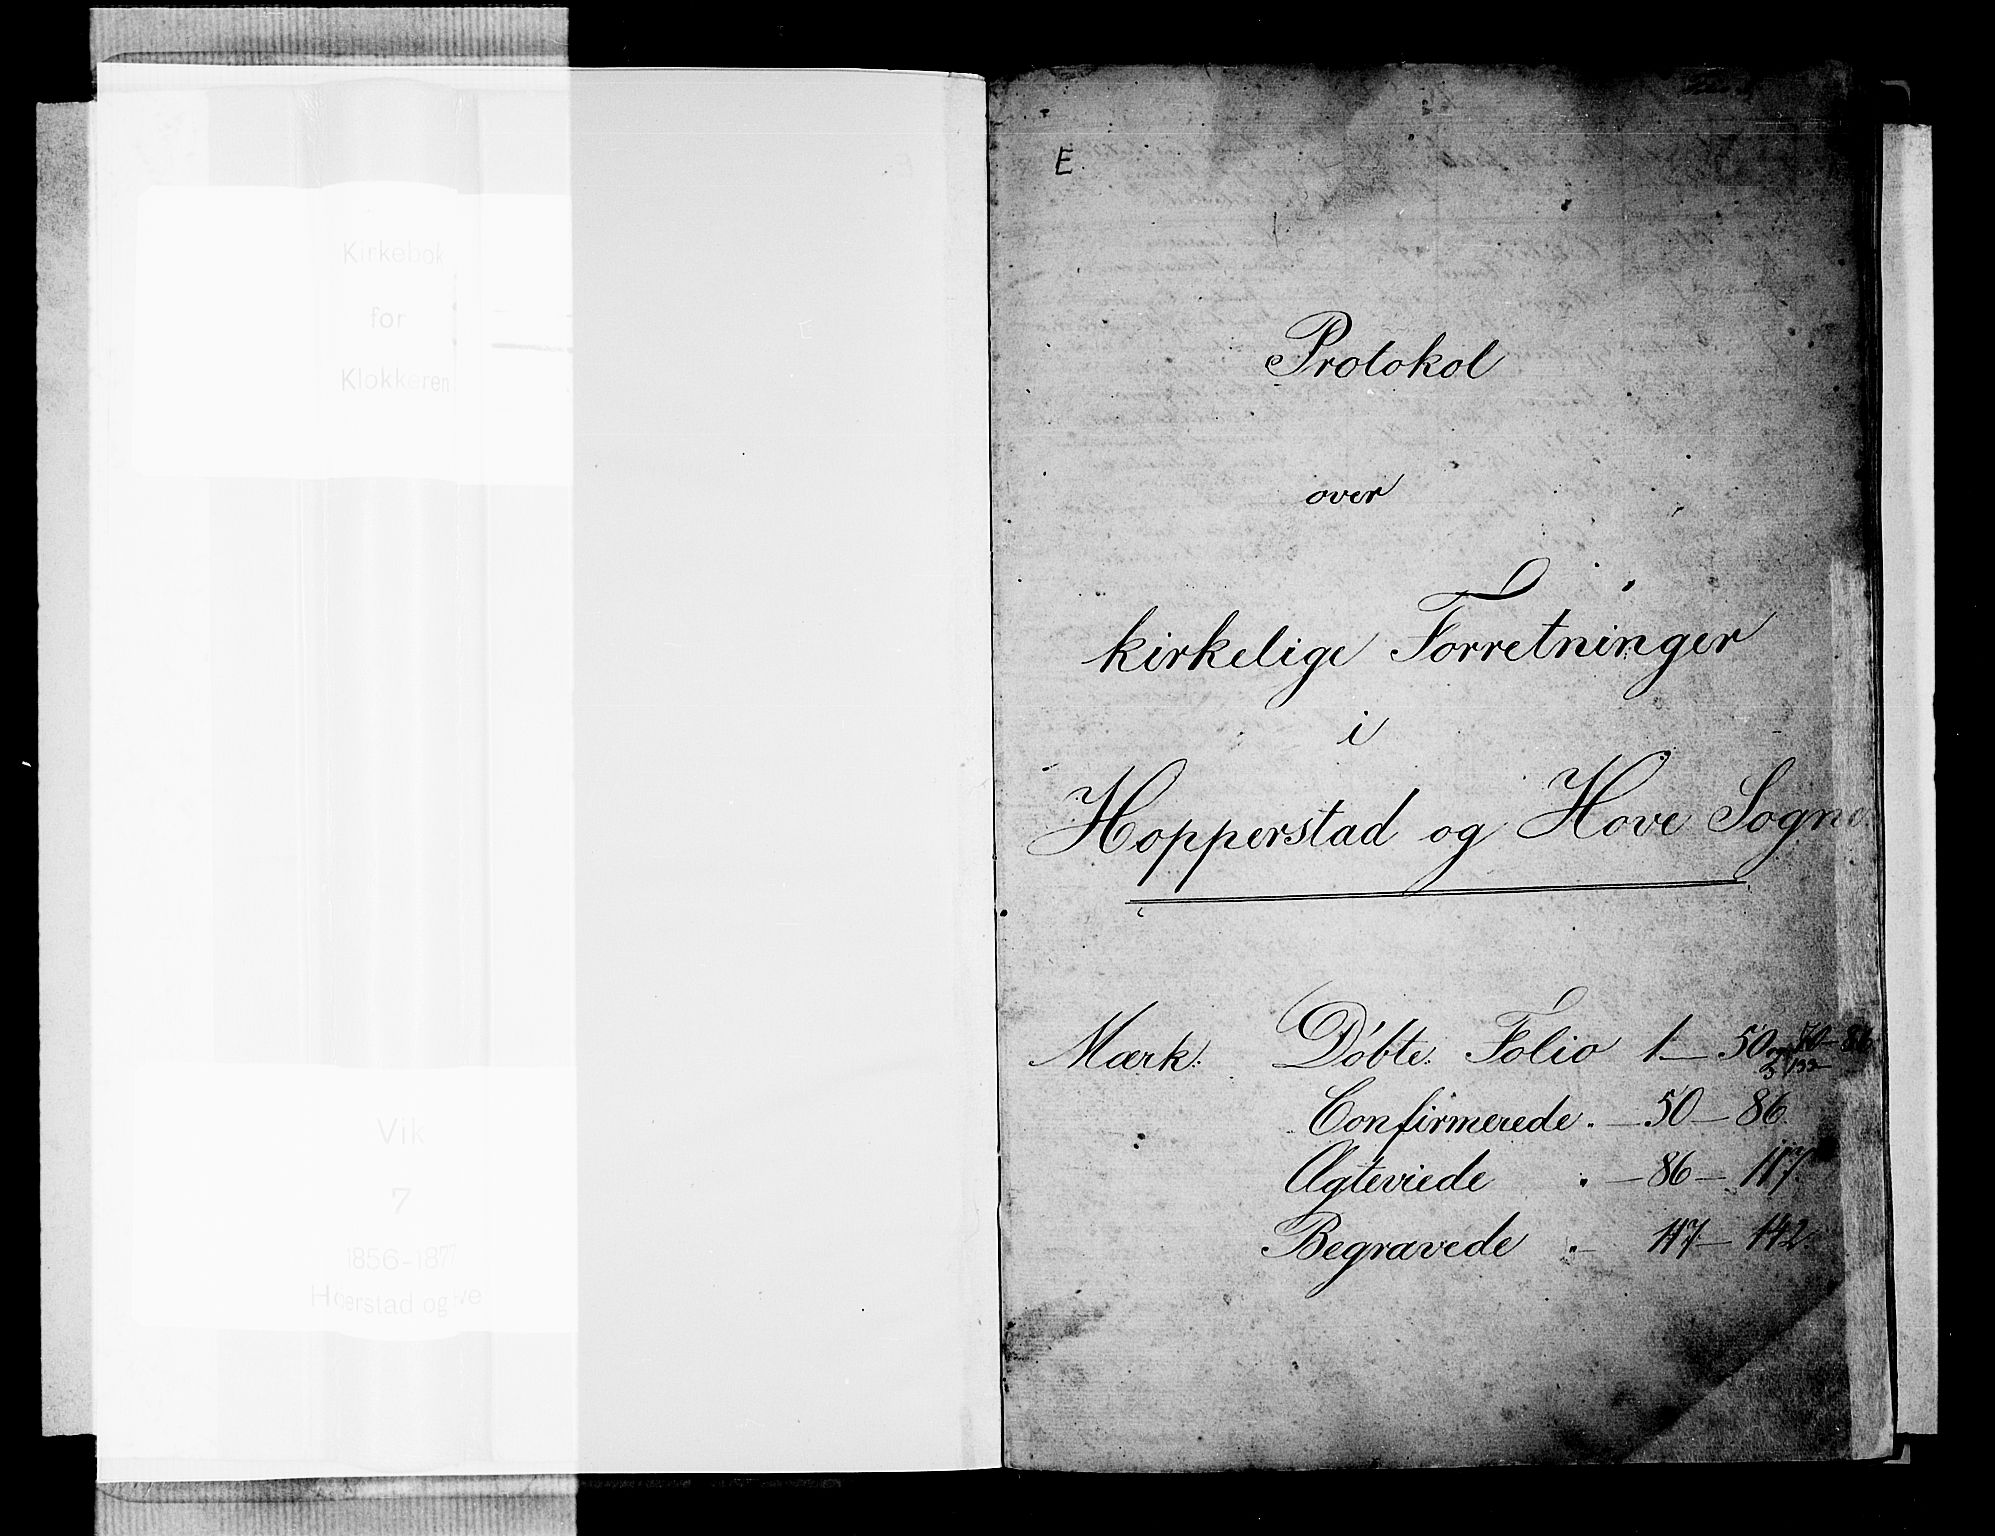 Kirkebok
for
Klokkeren
Vik
7
1856-1877
E
Protokol
over
kirkelige Forretninger
i
Hopperstad og Hove Sogne
Mærk: Døbte. Folio 1 — 50 70-86
132
Confirmerede. — 50 — 86.
Ægteviede . — 86 — 117.
Begravede . — 117 — 142.